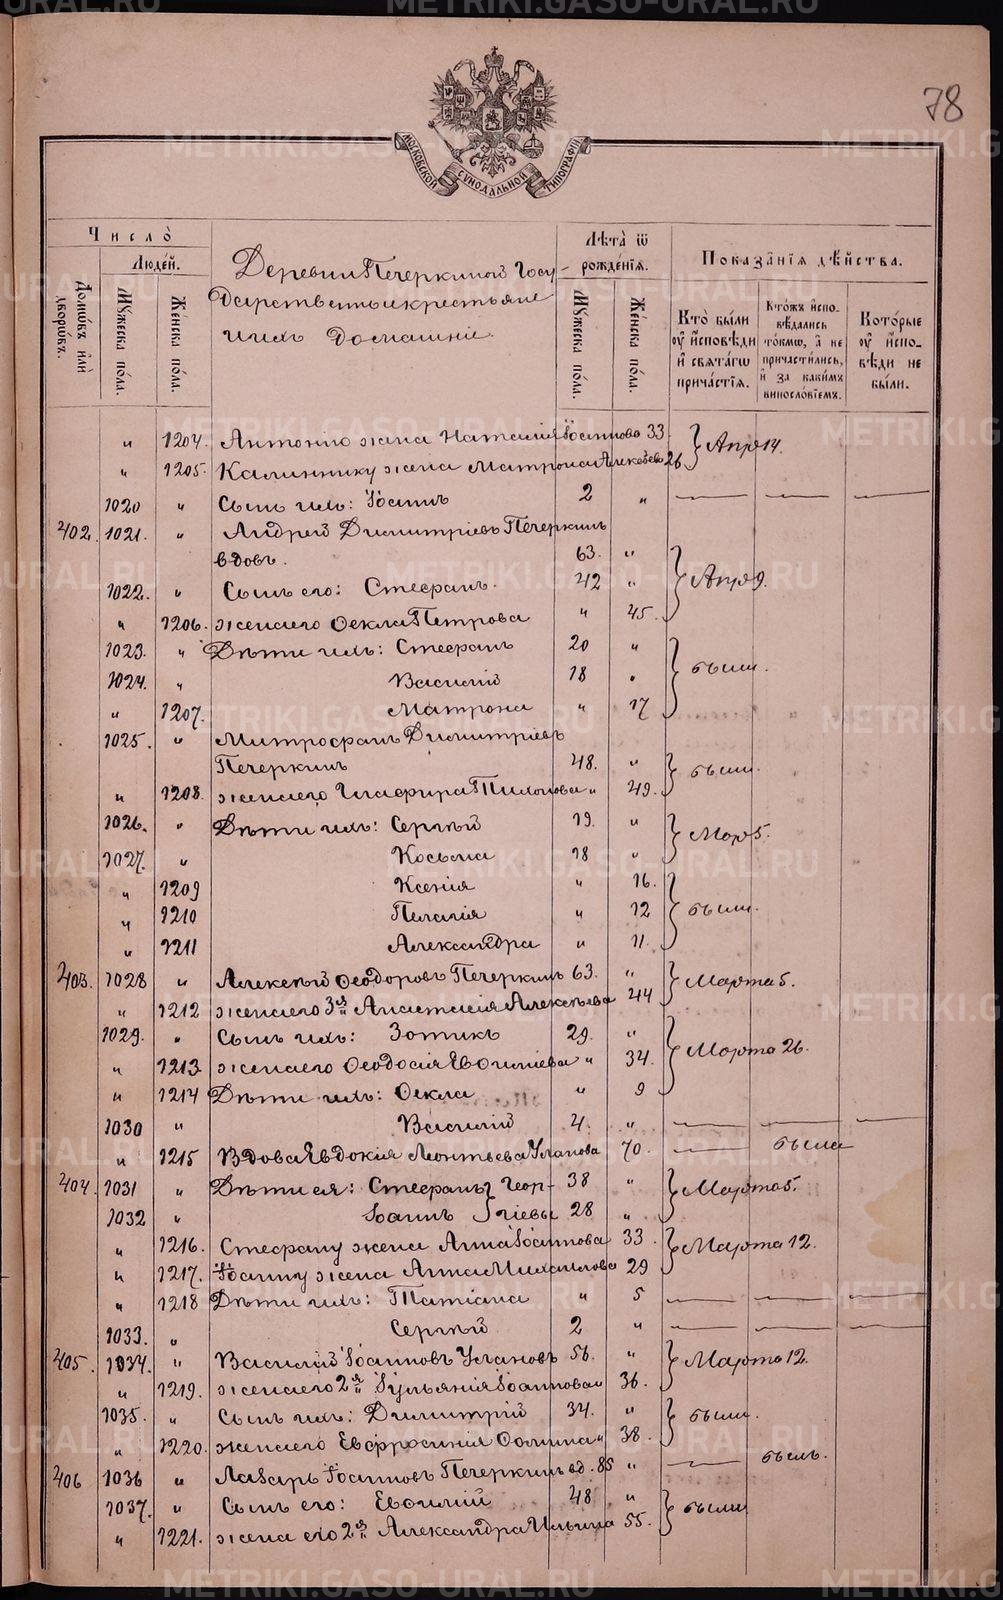 METRIKI.GASO-URAL.RU
78
МОСКОВСКОЙ СѴНОДАЛЬНОЙ ТИПОГРАФІИ
Число̀
Людей.
Домѡвъ или дворѡвъ.
Мꙋжеска пола.
Женска пола.
Деревни Печеркиной Госу-
дарственные крестьяне
и ихъ домашніе
Лѣта ѿ рожденїѧ.
Мꙋжеска пола.
Женска пола.
Показанїѧ дѣйства.
Кто были оу исповѣди и свѧтагѡ причастїѧ.
Ктожъ исповѣдались токмѡ, а не причастились, и за какимъ винословїемъ.
Которые оу исповѣди не были.
" 1204. Антонію жена Наталія Іоаннова 33 Апр 14.
" 1205. Калиннику жена Матрона Алексѣева 26
1020 " Сынъ ихъ: Іоаннъ 2 "
402. 1021. " Андрей Димитріевъ Печеркинъ
вдовъ. 63. "
1022. " Сынъ его: Стефанъ. 42 " Апр 9.
" 1206. жена его Ѳекла Петрова " 45.
1023. " Дѣти ихъ: Стефанъ 20 "
1024. " Василій 18 " были.
" 1207. Матрона " 17
1025. " Митрофанъ Димитріевъ
Печеркинъ 48. " были.
" 1208. жена его Глафира Тихонова " 49.
1026. " Дѣти ихъ: Сергѣй 19. " Мар 5.
1027. " Косьма 18 "
" 1209 Ксенія " 16.
" 1210 Пелагія " 12 были.
" 1211 Александра " 11.
403. 1028 " Алексѣй Ѳеодоровъ Печеркинъ 63. " Марта 5.
" 1212 жена его 3я Анастасія Алексѣева 44
1029. " Сынъ ихъ: Зотикъ 29. "
" 1213 жена его Ѳеодосія Евѳиміева " 34. Марта 26.
" 1214 Дѣти ихъ: Ѳекла " 9
1030 " Василій 4. "
" 1215 Вдова Евдокія Леонтьева Уланова 70. была
404. 1031 " Дѣти ея: Стефанъ Геор- 38 " Марта 5.
1032 " Іоаннъ гіевы 28 "
" 1216. Стефану жена Анна Іоаннова 33. Марта 12.
" 1217. Іоанну жена Анна Михаилова 29
" 1218 Дѣти ихъ: Татіана " 5
1033. " Сергѣй 2 "
405. 1034. " Василій Іоанновъ Улановъ 56. " Марта 12.
" 1219. жена его 2я Іульянія Іоаннова " 36.
1035. " Сынъ ихъ: Димитрій 34. " были.
" 1220. жена его Евфросинія Ѳомина " 38.
406 1036 " Лазарь Іоанновъ Печеркинъ вд. 85 " былъ.
1037. " Сынъ его: Евѳимій 48 " были
" 1221. жена его 2я Александра Ильина 55.